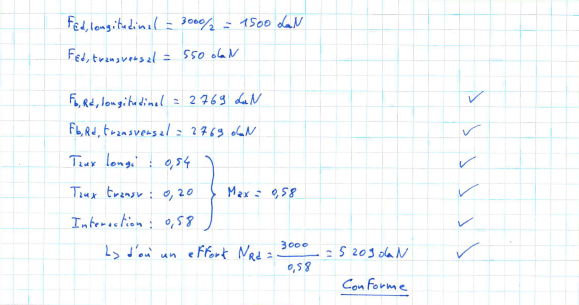 FEd,longitudinal = 3000/2 = 1500 daN
FEd,transversal = 550 daN
Fb,Rd,longitudinal = 2769 daN ✓
Fb,Rd,transversal = 2769 daN ✓
Taux longi : 0,54 ✓
Taux transv : 0,20 } Max = 0,58 ✓
Interaction : 0,58 ✓
↳ d'où un effort NRd = 3000/0,58 = 5209 daN ✓
Conforme